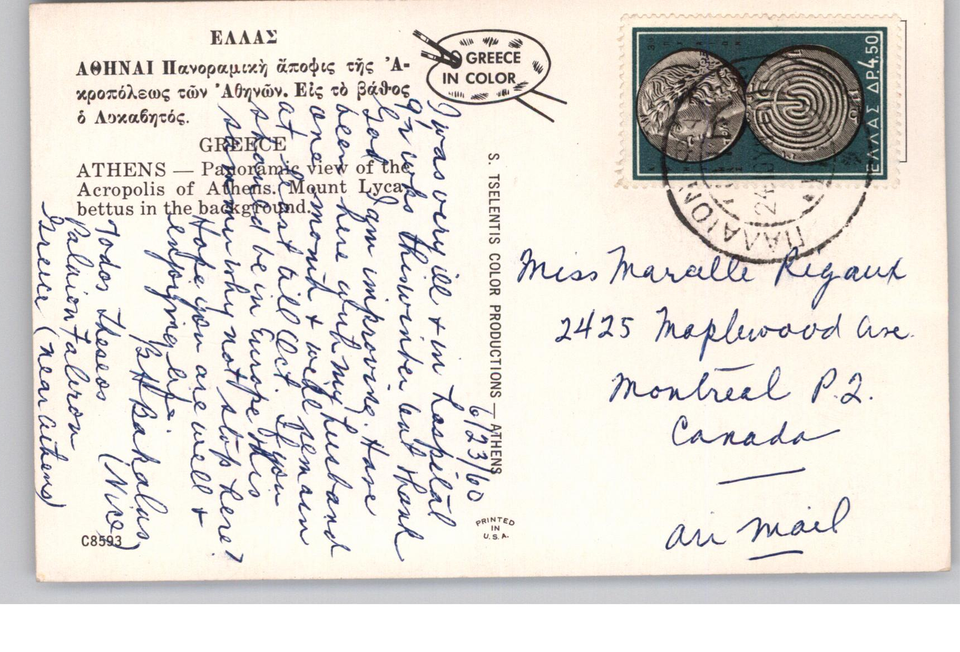 ΕΛΛΑΣ
ΑΘΗΝΑΙ Πανοραμικὴ ἄποψις τῆς ᾿Α-
κροπόλεως τῶν ᾿Αθηνῶν. Εἰς τὸ βάθος
ὁ Λυκαβητός.
GREECE
ATHENS — Panoramic view of the
Acropolis of Athens. Mount Lyca-
bettus in the background.
GREECE
IN COLOR
6/23/60
I was very ill & in hospital
9 wks this winter but thank
God I am improving. Have
been here with my husband
one month & will remain
at least till Oct. If you
should be in Europe this
summer why not stop here?
Hope you are well &
enjoying life.
B H Bahalas
(Nice)
Todos Theseos
Palaion Faleron
Greece (near Athens)
C8593
S. TSELENTIS COLOR PRODUCTIONS — ATHENS
PRINTED
IN
U.S.A.
ΕΛΛΑΣ ΔΡ. 4.50
ΠΑΛΑΙΟΝ
Miss Marcelle Rigaux
2425 Maplewood Ave.
Montréal P.Q.
Canada
air mail